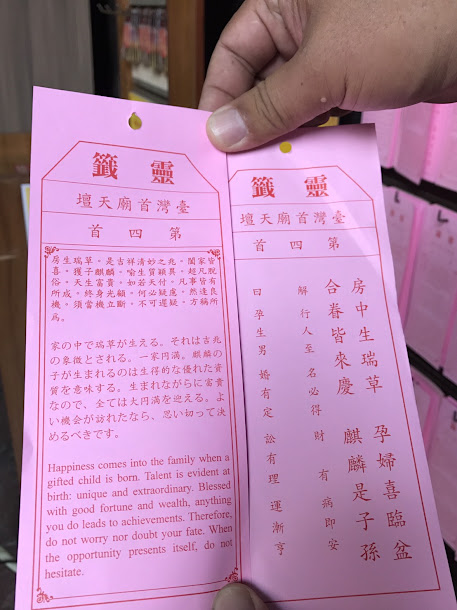 靈籤
臺灣首廟天壇
第四首
房生瑞草，是吉祥清妙之兆，闔家皆
喜，獲子麒麟，喻生質穎異，超凡脫
俗，天生富貴，如若天付，凡事皆有
所成，終身光顯，何必疑慮，然逢良
機，須當機立斷，不可遲疑，方稱所
為。
家の中で瑞草が生える。それは吉兆
の象徴とされる。一家円満。麒麟の
子が生まれるのは生得的な優れた資
質を意味する。生まれながらに富貴
なので、全ては大円満を迎える。よ
い機会が訪れたなら、思い切って決
めるべきです。
Happiness comes into the family when a
gifted child is born. Talent is evident at
birth: unique and extraordinary. Blessed
with good fortune and wealth, anything
you do leads to achievements. Therefore,
do not worry nor doubt your fate. When
the opportunity presents itself, do not
hesitate.
靈籤
臺灣首廟天壇
第四首
房中生瑞草 孕婦喜臨盆
合眷皆來慶 麒麟是子孫
解 行人至 名必得 財有 病即安
曰 孕生男 婚有定 訟有理 運漸亨